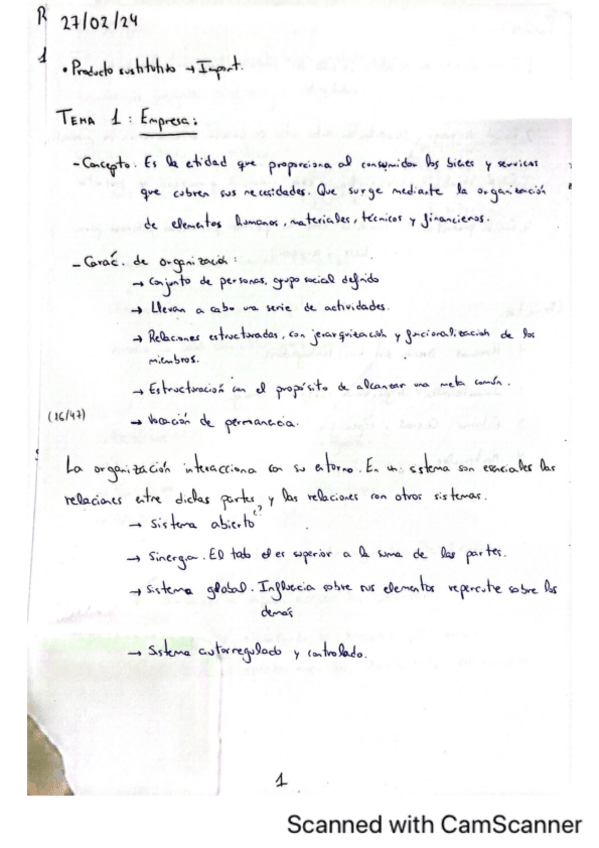 R 27/02/24
1
• Producto sustitutivo → Import.
TEMA 1: Empresa:
- Concepto. Es la etidad que proporciona al consumidor los bienes y servicios
que cubren sus necesidades. Que surge mediante la organización
de elementos humanos, materiales, técnicos y financieros.
- Carác. de organización:
→ Conjunto de personas, grupo social definido
→ Llevan a cabo una serie de actividades.
→ Relaciones estructuradas, con jerarquización y funcionalización de los
miembros.
→ Estructuración con el propósito de alcanzar una meta común.
(16/47)
→ Vocación de permanencia.
La organización interacciona con su entorno. En un sistema son esenciales las
relaciones entre dichas partes y las relaciones con otros sistemas.
→ Sistema abierto (?
→ Sinergia. El todo es superior a la suma de las partes.
→ Sistema global. Influecia sobre sus elementos repercute sobre los
demás
→ Sistema autorregulado y controlado.
1
Scanned with CamScanner